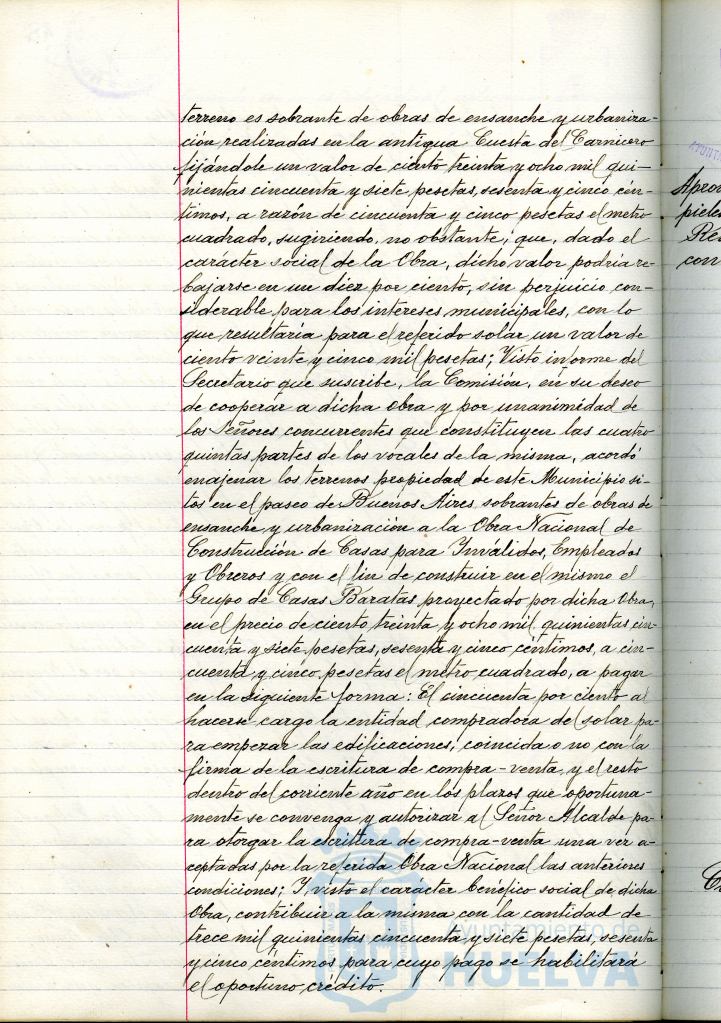 terreno es sobrante de obras de ensanche y urbaniza-
ción realizadas en la antigua Cuesta del Carnicero
fijándole un valor de ciento treinta y ocho mil qui-
nientas cincuenta y siete pesetas, sesenta y cinco cén-
timos, a razón de cincuenta y cinco pesetas el metro
cuadrado, sugiriendo, no obstante, que, dado el
carácter social de la Obra, dicho valor podría re-
bajarse en un diez por ciento, sin perjuicio con-
siderable para los intereses municipales, con lo
que resultaría para el referido solar un valor de
ciento veinte y cinco mil pesetas; Visto informe del
Secretario que suscribe, la Comisión, en su deseo
de cooperar a dicha obra y por unanimidad de
los Señores concurrentes que constituyen las cuatro
quintas partes de los vocales de la misma, acordó
enajenar los terrenos propiedad de este Municipio si-
tos en el paseo de Buenos Aires, sobrantes de obras de
ensanche y urbanización a la Obra Nacional de
Construcción de Casas para Inválidos, Empleados
y Obreros y con el fin de construir en el mismo el
Grupo de Casas Baratas proyectado por dicha Obra,
en el precio de ciento treinta y ocho mil quinientas cin-
cuenta y siete pesetas, sesenta y cinco céntimos, a cin-
cuenta y cinco pesetas el metro cuadrado, a pagar
en la siguiente forma: El cincuenta por ciento al
hacerse cargo la entidad compradora del solar pa-
ra empezar las edificaciones, coincida o no con la
firma de la escritura de compra-venta y el resto
dentro del corriente año en los plazos que oportuna-
mente se convenga y autorizar al Señor Alcalde pa-
ra otorgar la escritura de compra-venta una vez a-
ceptadas por la referida Obra Nacional las anteriores
condiciones; Y, visto el carácter benéfico social de dicha
Obra, contribuir a la misma con la cantidad de
trece mil quinientas cincuenta y siete pesetas, sesenta
y cinco céntimos para cuyo pago se habilitará
el oportuno crédito.
Ayuntamiento de
HUELVA